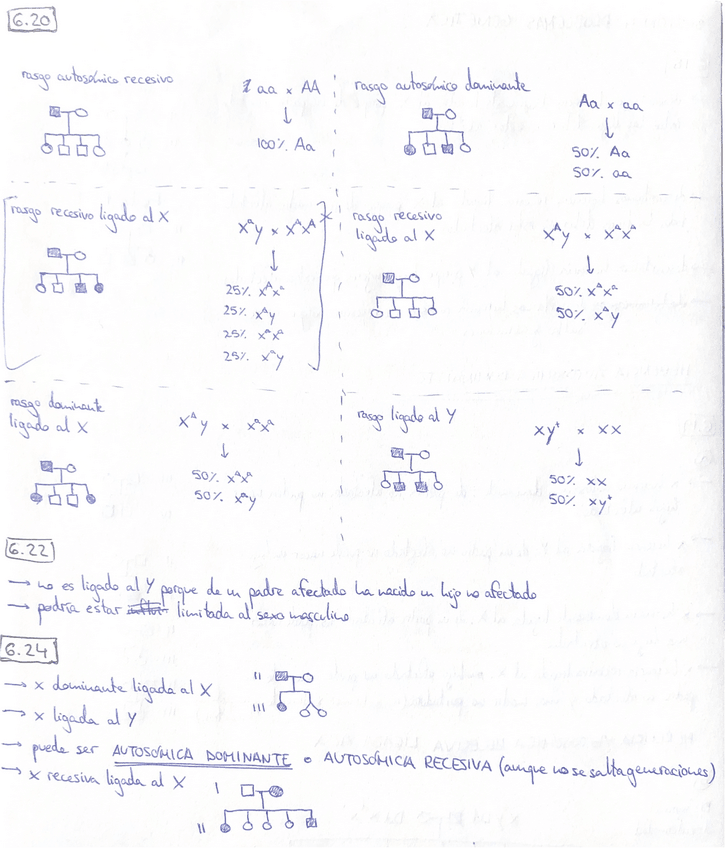 6.20
rasgo autosómico recesivo
aa x AA
↓
100% Aa
rasgo autosómico dominante
Aa x aa
↓
50% Aa
50% aa
rasgo recesivo ligado al X
XᵃY x XᴬXᴬ
↓
25% XᴬXᵃ
25% XᴬY
25% XᵃXᵃ
25% XᵃY
rasgo recesivo
ligado al X
↓
rasgo dominante
ligado al X
XᴬY x XᵃXᵃ
↓
50% XᴬXᵃ
50% XᵃY
rasgo ligado al Y
XY⁺ x XX
↓
50% XX
50% XY⁺
6.22
→ no es ligado al Y porque de un padre afectado ha nacido un hijo no afectado
→ podría estar limitada al sexo masculino
6.24
→ x dominante ligada al X
II
→ x ligada al Y
III
→ puede ser AUTOSÓMICA DOMINANTE o AUTOSÓMICA RECESIVA (aunque no se salta generaciones)
→ x recesiva ligada al X
I
II